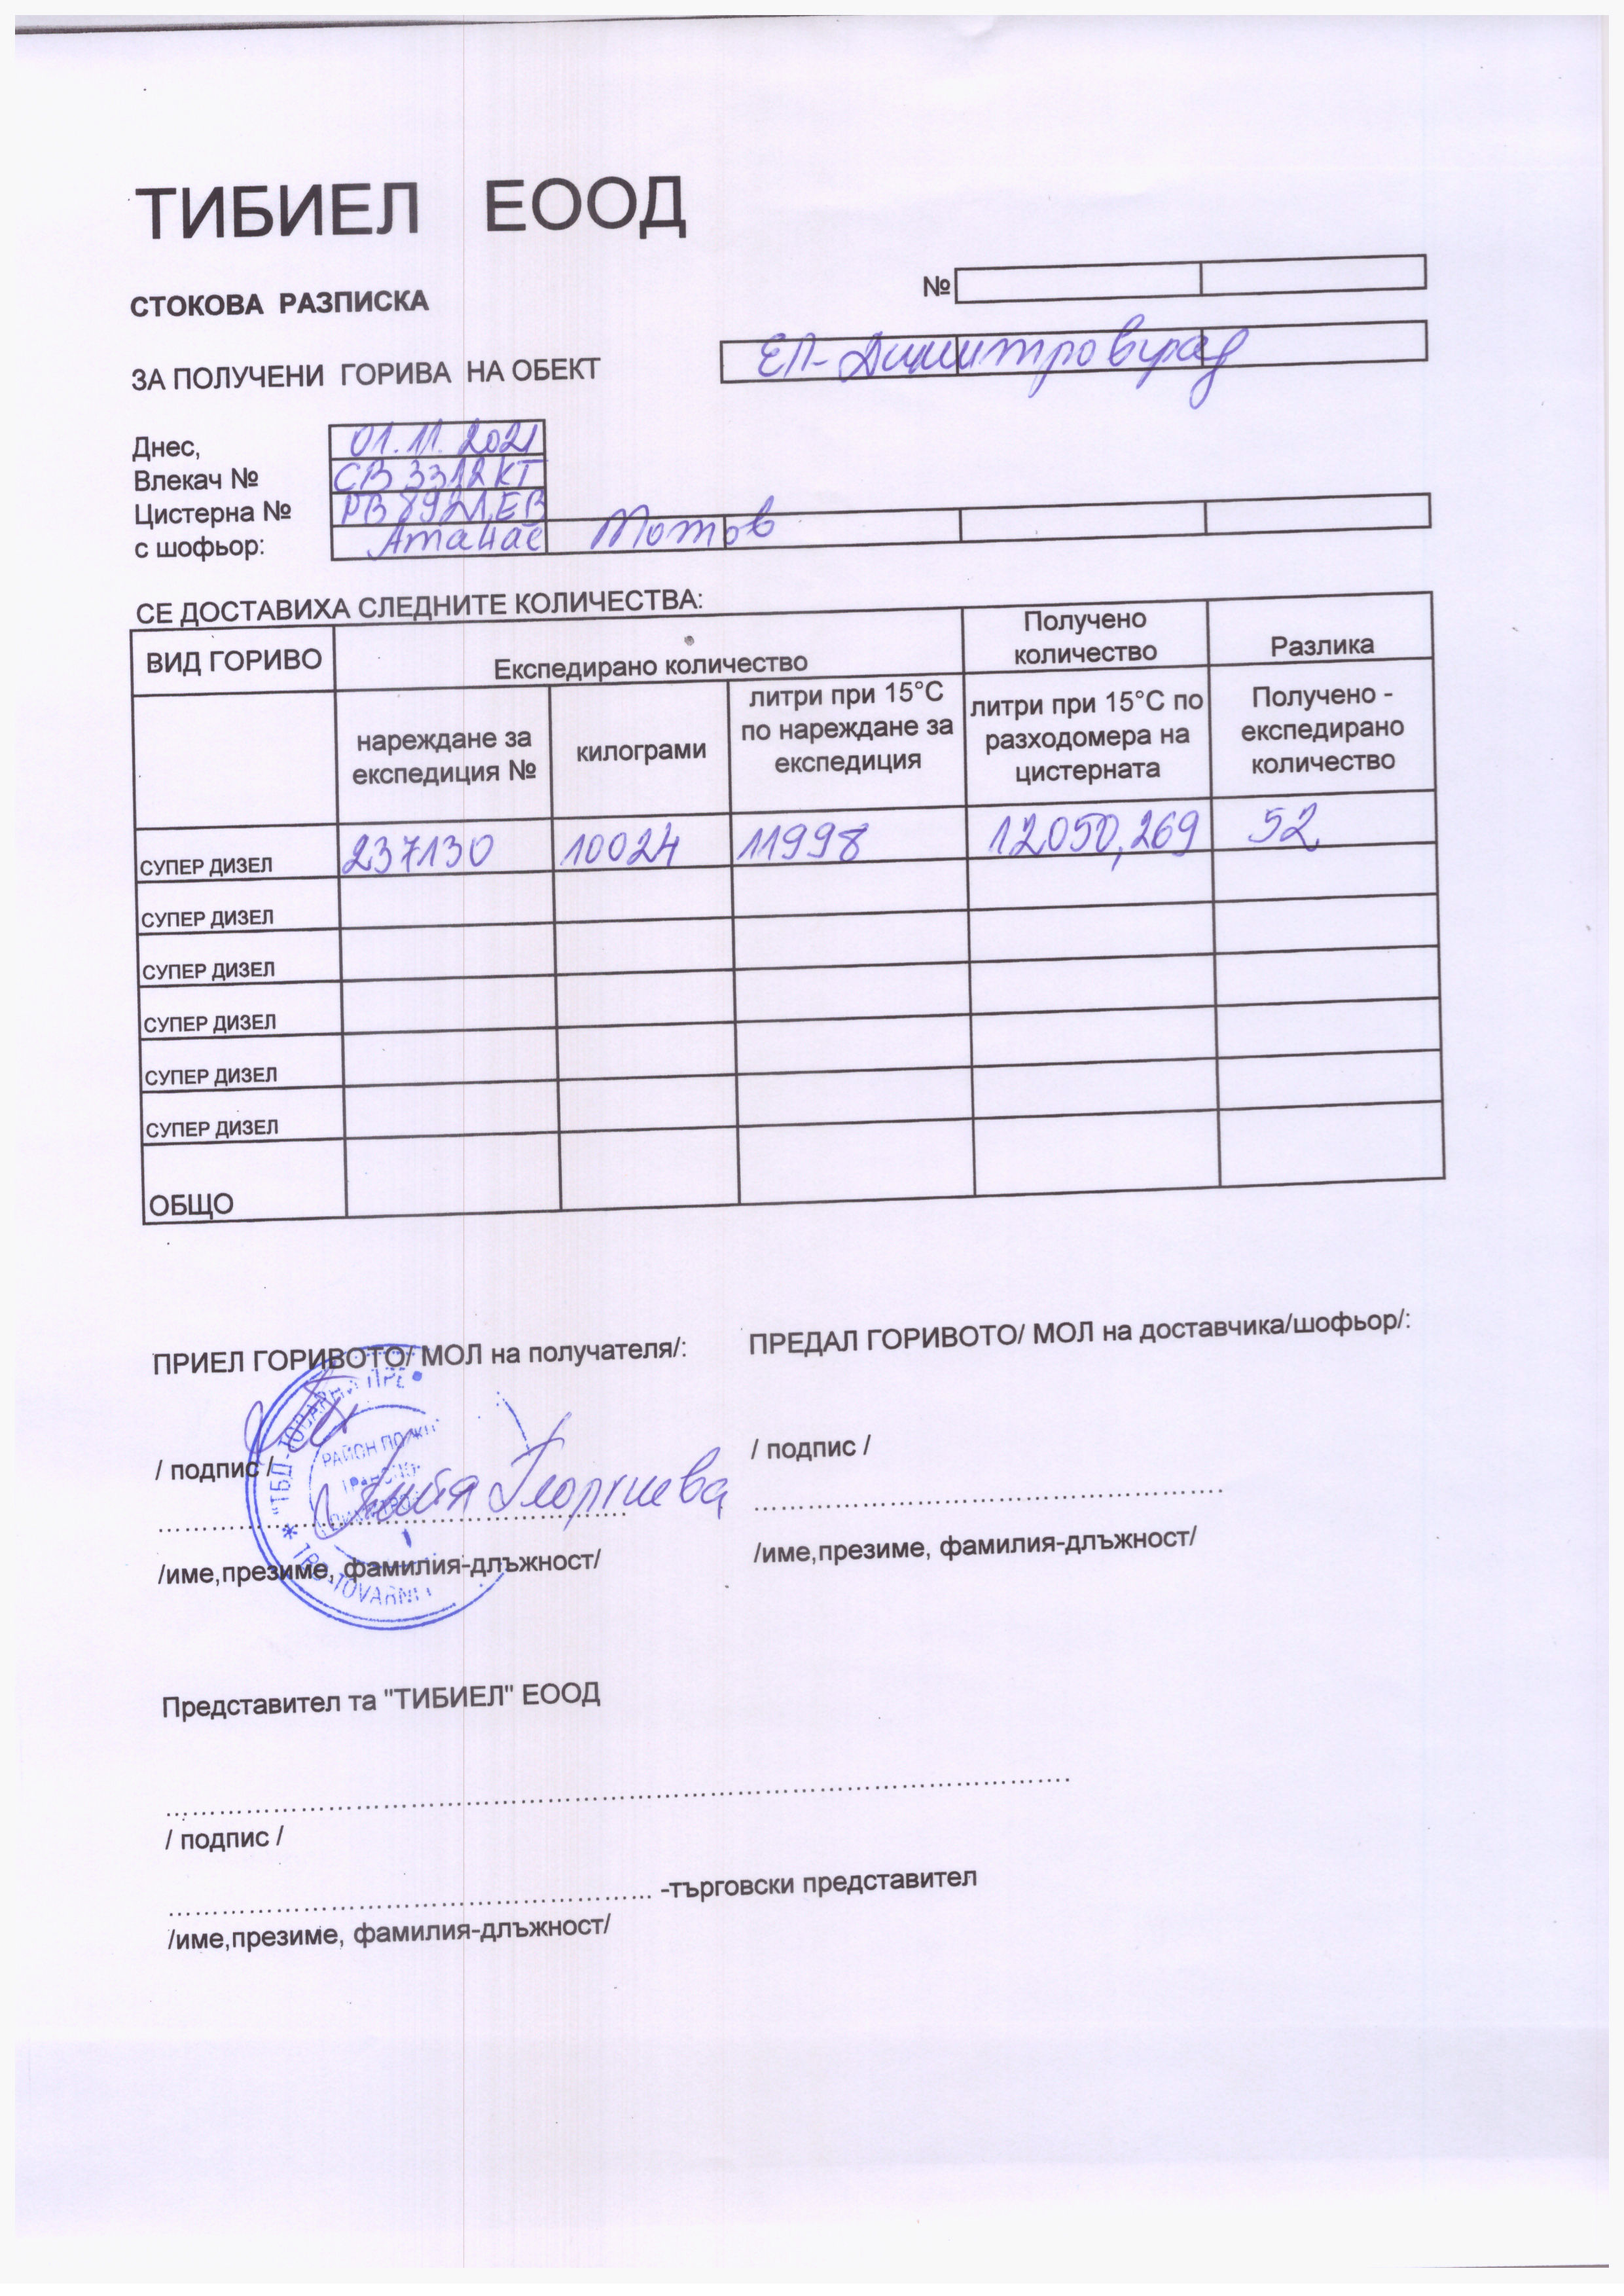 ТИБИЕЛ ЕООД
СТОКОВА РАЗПИСКА
№
ЗА ПОЛУЧЕНИ ГОРИВА НА ОБЕКТ ЕП-Димитровград
Днес, 01.11.2021
Влекач № СВ 3312 КТ
Цистерна № РВ 8921 ЕВ
с шофьор: Атанас Тотов
СЕ ДОСТАВИХА СЛЕДНИТЕ КОЛИЧЕСТВА:
ВИД ГОРИВО Експедирано количество Получено количество Разлика
нареждане за експедиция № килограми литри при 15°С по нареждане за експедиция литри при 15°С по разходомера на цистерната Получено - експедирано количество
СУПЕР ДИЗЕЛ 237130 10024 11998 12050,269 52
СУПЕР ДИЗЕЛ
СУПЕР ДИЗЕЛ
СУПЕР ДИЗЕЛ
СУПЕР ДИЗЕЛ
СУПЕР ДИЗЕЛ
ОБЩО
ПРИЕЛ ГОРИВОТО/ МОЛ на получателя/: ПРЕДАЛ ГОРИВОТО/ МОЛ на доставчика/шофьор/:
/ подпис / / подпис /
Георгиева
/име,презиме, фамилия-длъжност/ /име,презиме, фамилия-длъжност/
Представител та "ТИБИЕЛ" ЕООД
/ подпис /
-търговски представител
/име,презиме, фамилия-длъжност/